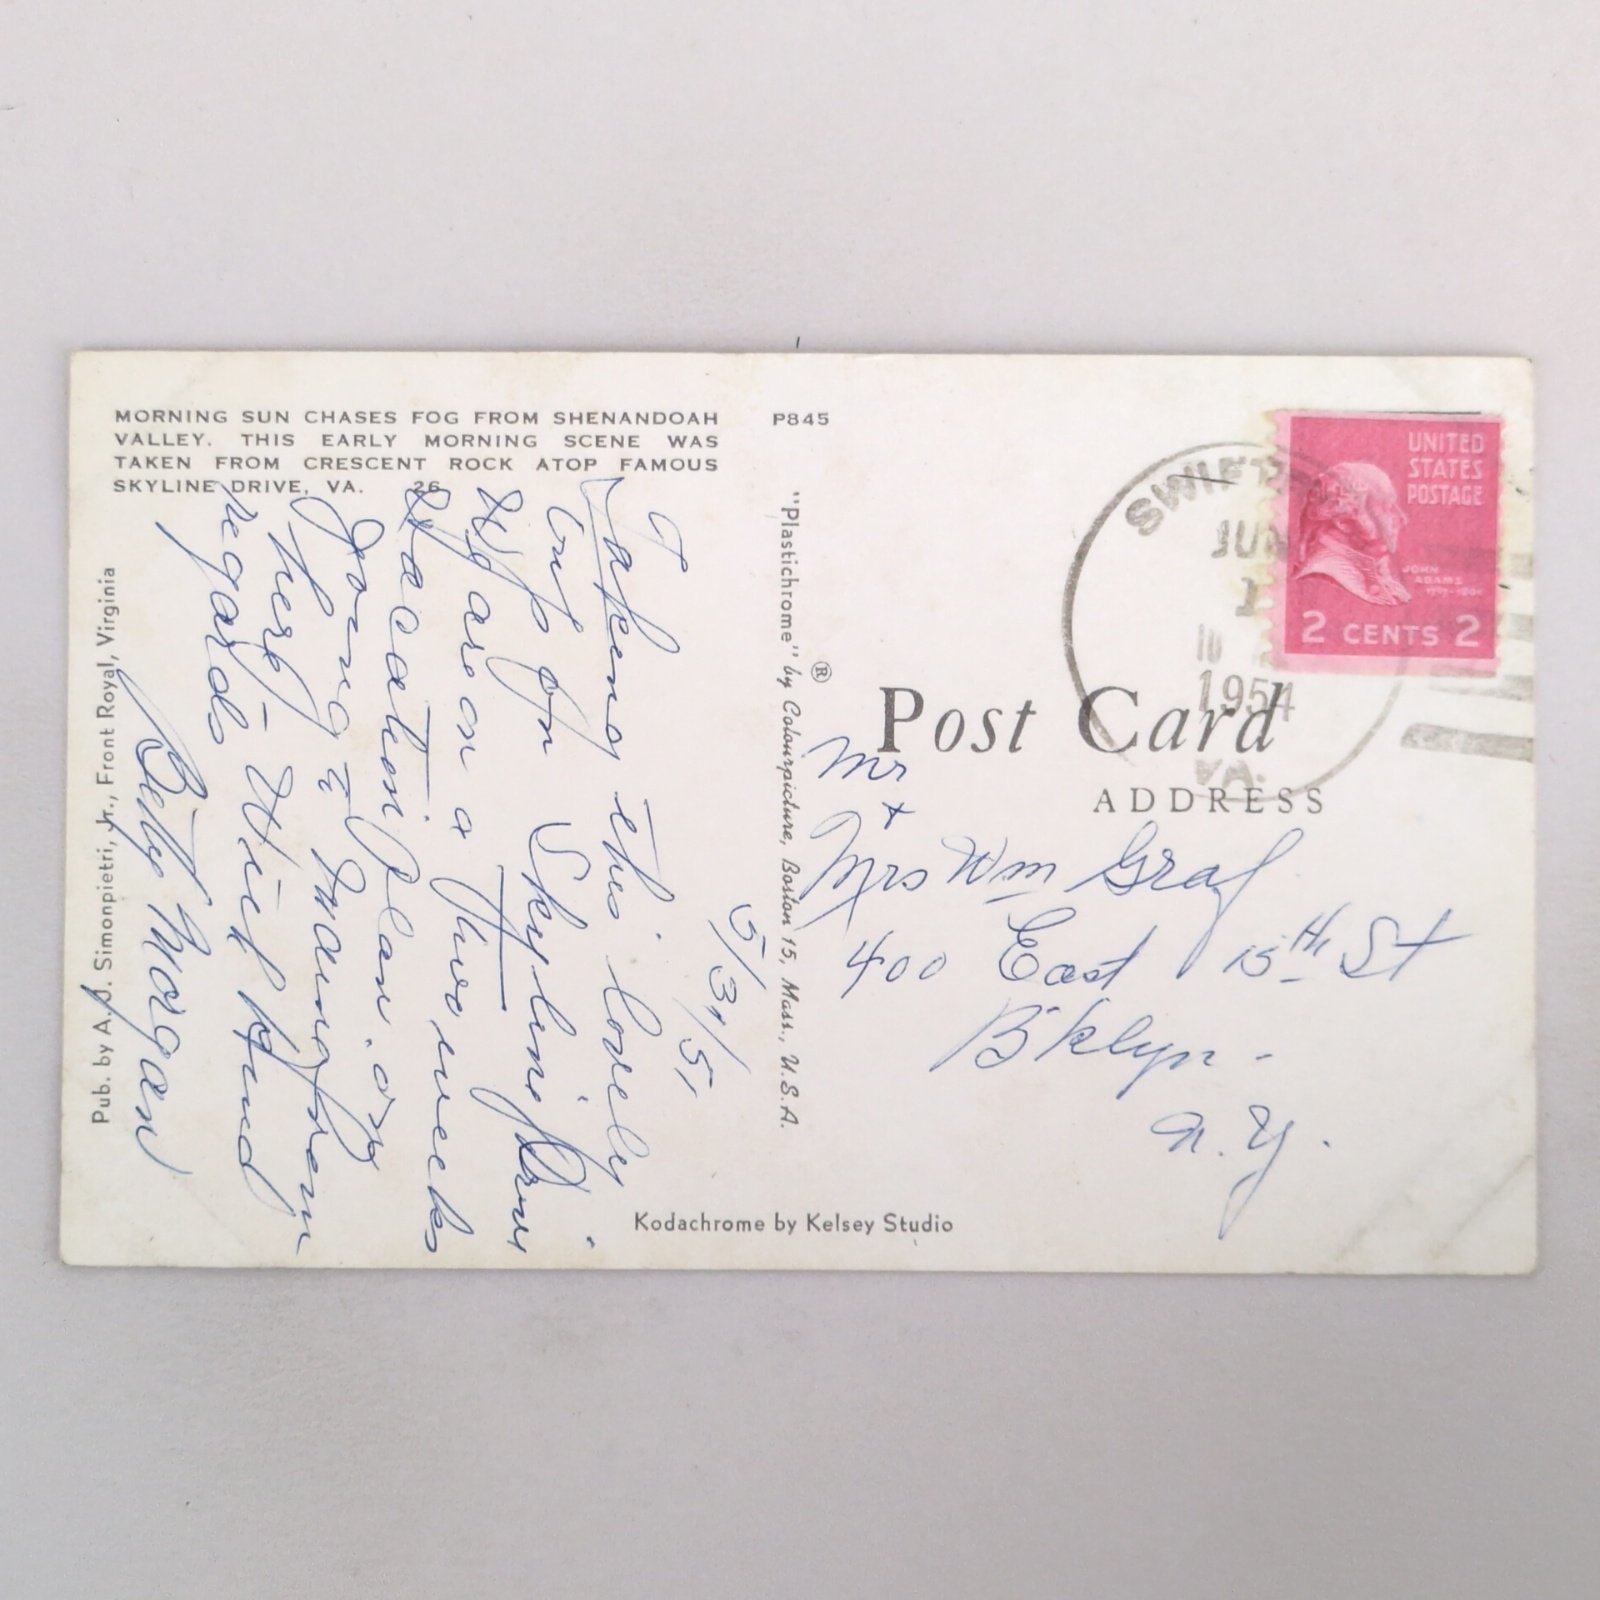 MORNING SUN CHASES FOG FROM SHENANDOAH
VALLEY. THIS EARLY MORNING SCENE WAS
TAKEN FROM CRESCENT ROCK ATOP FAMOUS
SKYLINE DRIVE, VA. 26
P845
Pub. by A. J. Simonpietri, Jr., Front Royal, Virginia
"Plastichrome" ® by Colourpicture, Boston 15, Mass., U.S.A.
Kodachrome by Kelsey Studio
5/31/5
Taking this lovely
trip on Skyline Drive
We are on a two weeks
Vacation
going
here - With kind
regards
Betty Morgan
Post Card
ADDRESS
Mr
+
Mrs Wm Graf
400 East 15th St
B'klyn -
N.Y.
SWIFT
JUN
1
1954
VA.
UNITED
STATES
POSTAGE
JOHN
ADAMS
2 CENTS 2